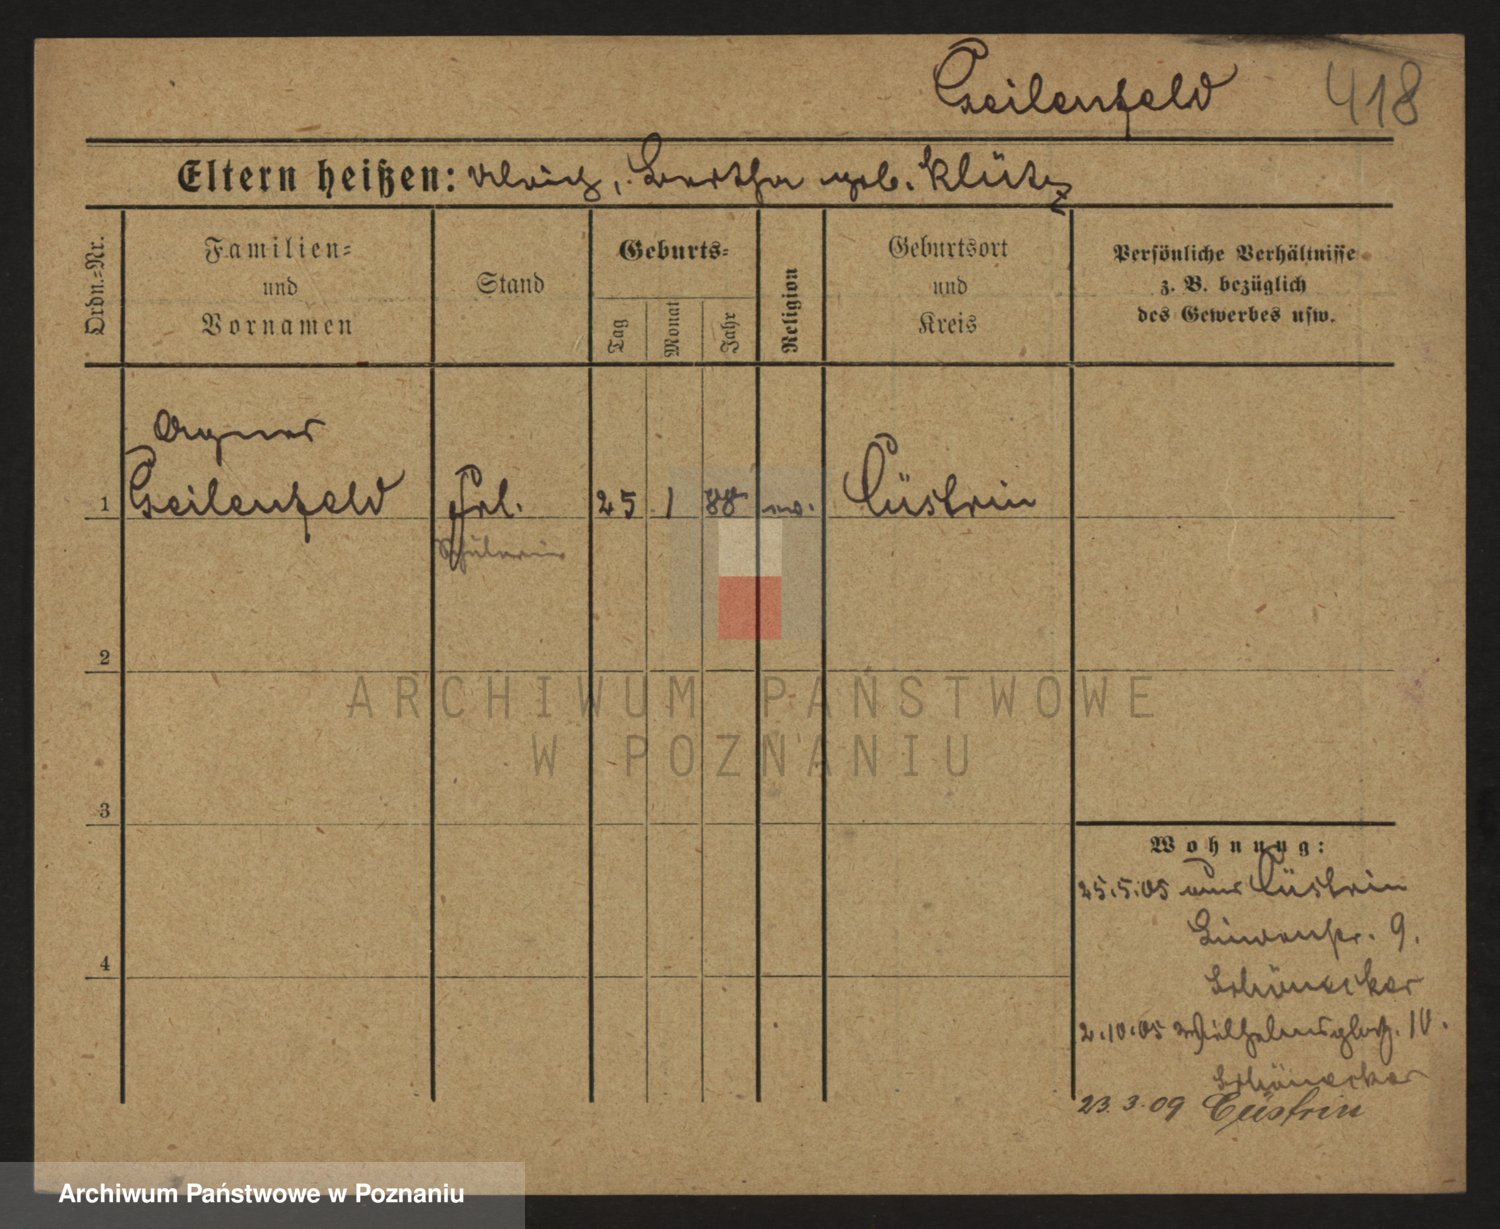 Geilenfeld 418
Eltern heißen: Ulrich, Bertha geb. Klütz
Ordn.=Nr.
Familien=
und
Vornamen
Stand
Geburts=
Tag
Monat
Jahr
Religion
Geburtsort
und
Kreis
Persönliche Verhältnisse
z. B. bezüglich
des Gewerbes usw.
Agnes
1 Geilenfeld Frl. 25 1 88 ev. Cüstrin
Schülerin
2
3
4
ARCHIWUM PAŃSTWOWE
W POZNANIU
Wohnung:
25.5.05 aus Cüstrin
Lindenstr. 9.
Schönecker
2.10.05 Wilhelmsplatz. 10.
Schönecker
23.3.09 Cüstrin
Archiwum Państwowe w Poznaniu